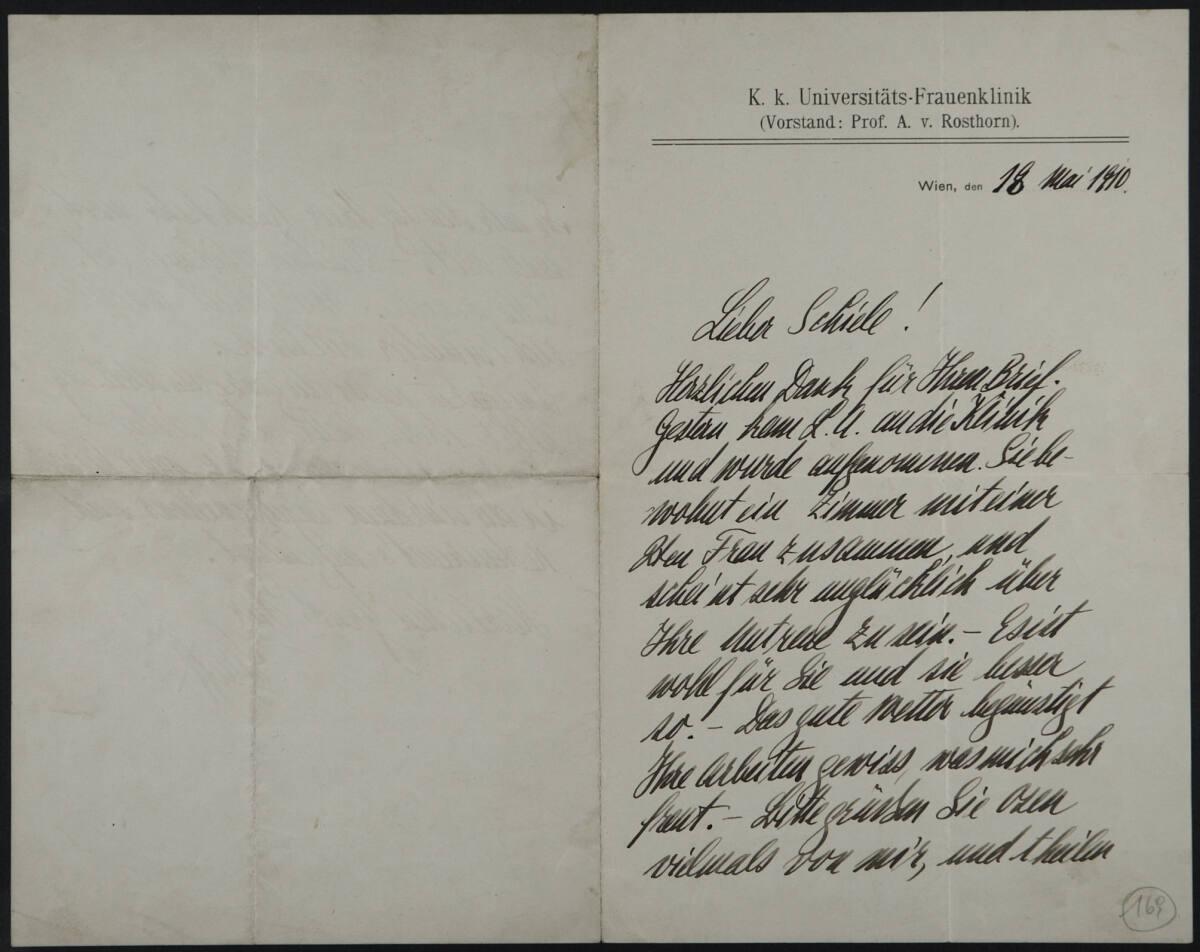 K. k. Universitäts-Frauenklinik
(Vorstand: Prof. A. v. Rosthorn).
Wien, den 18 Mai 1910.
Lieber Schiele!
Herzlichen Dank für Ihren Brief.
Gestern kam L. A. an die Klinik
und wurde aufgenommen. Sie be-
wohnt ein Zimmer mit einer
Frau zusammen, und
scheint sehr unglücklich über
Ihre Untreue zu sein. – Es ist
wohl für Sie und sie besser
so. – Das gute Wetter begünstigt
Ihre Arbeiten gewiss, was mich sehr
freut. – Bitte grüßen Sie Ozen
vielmals von mir, und theilen
169